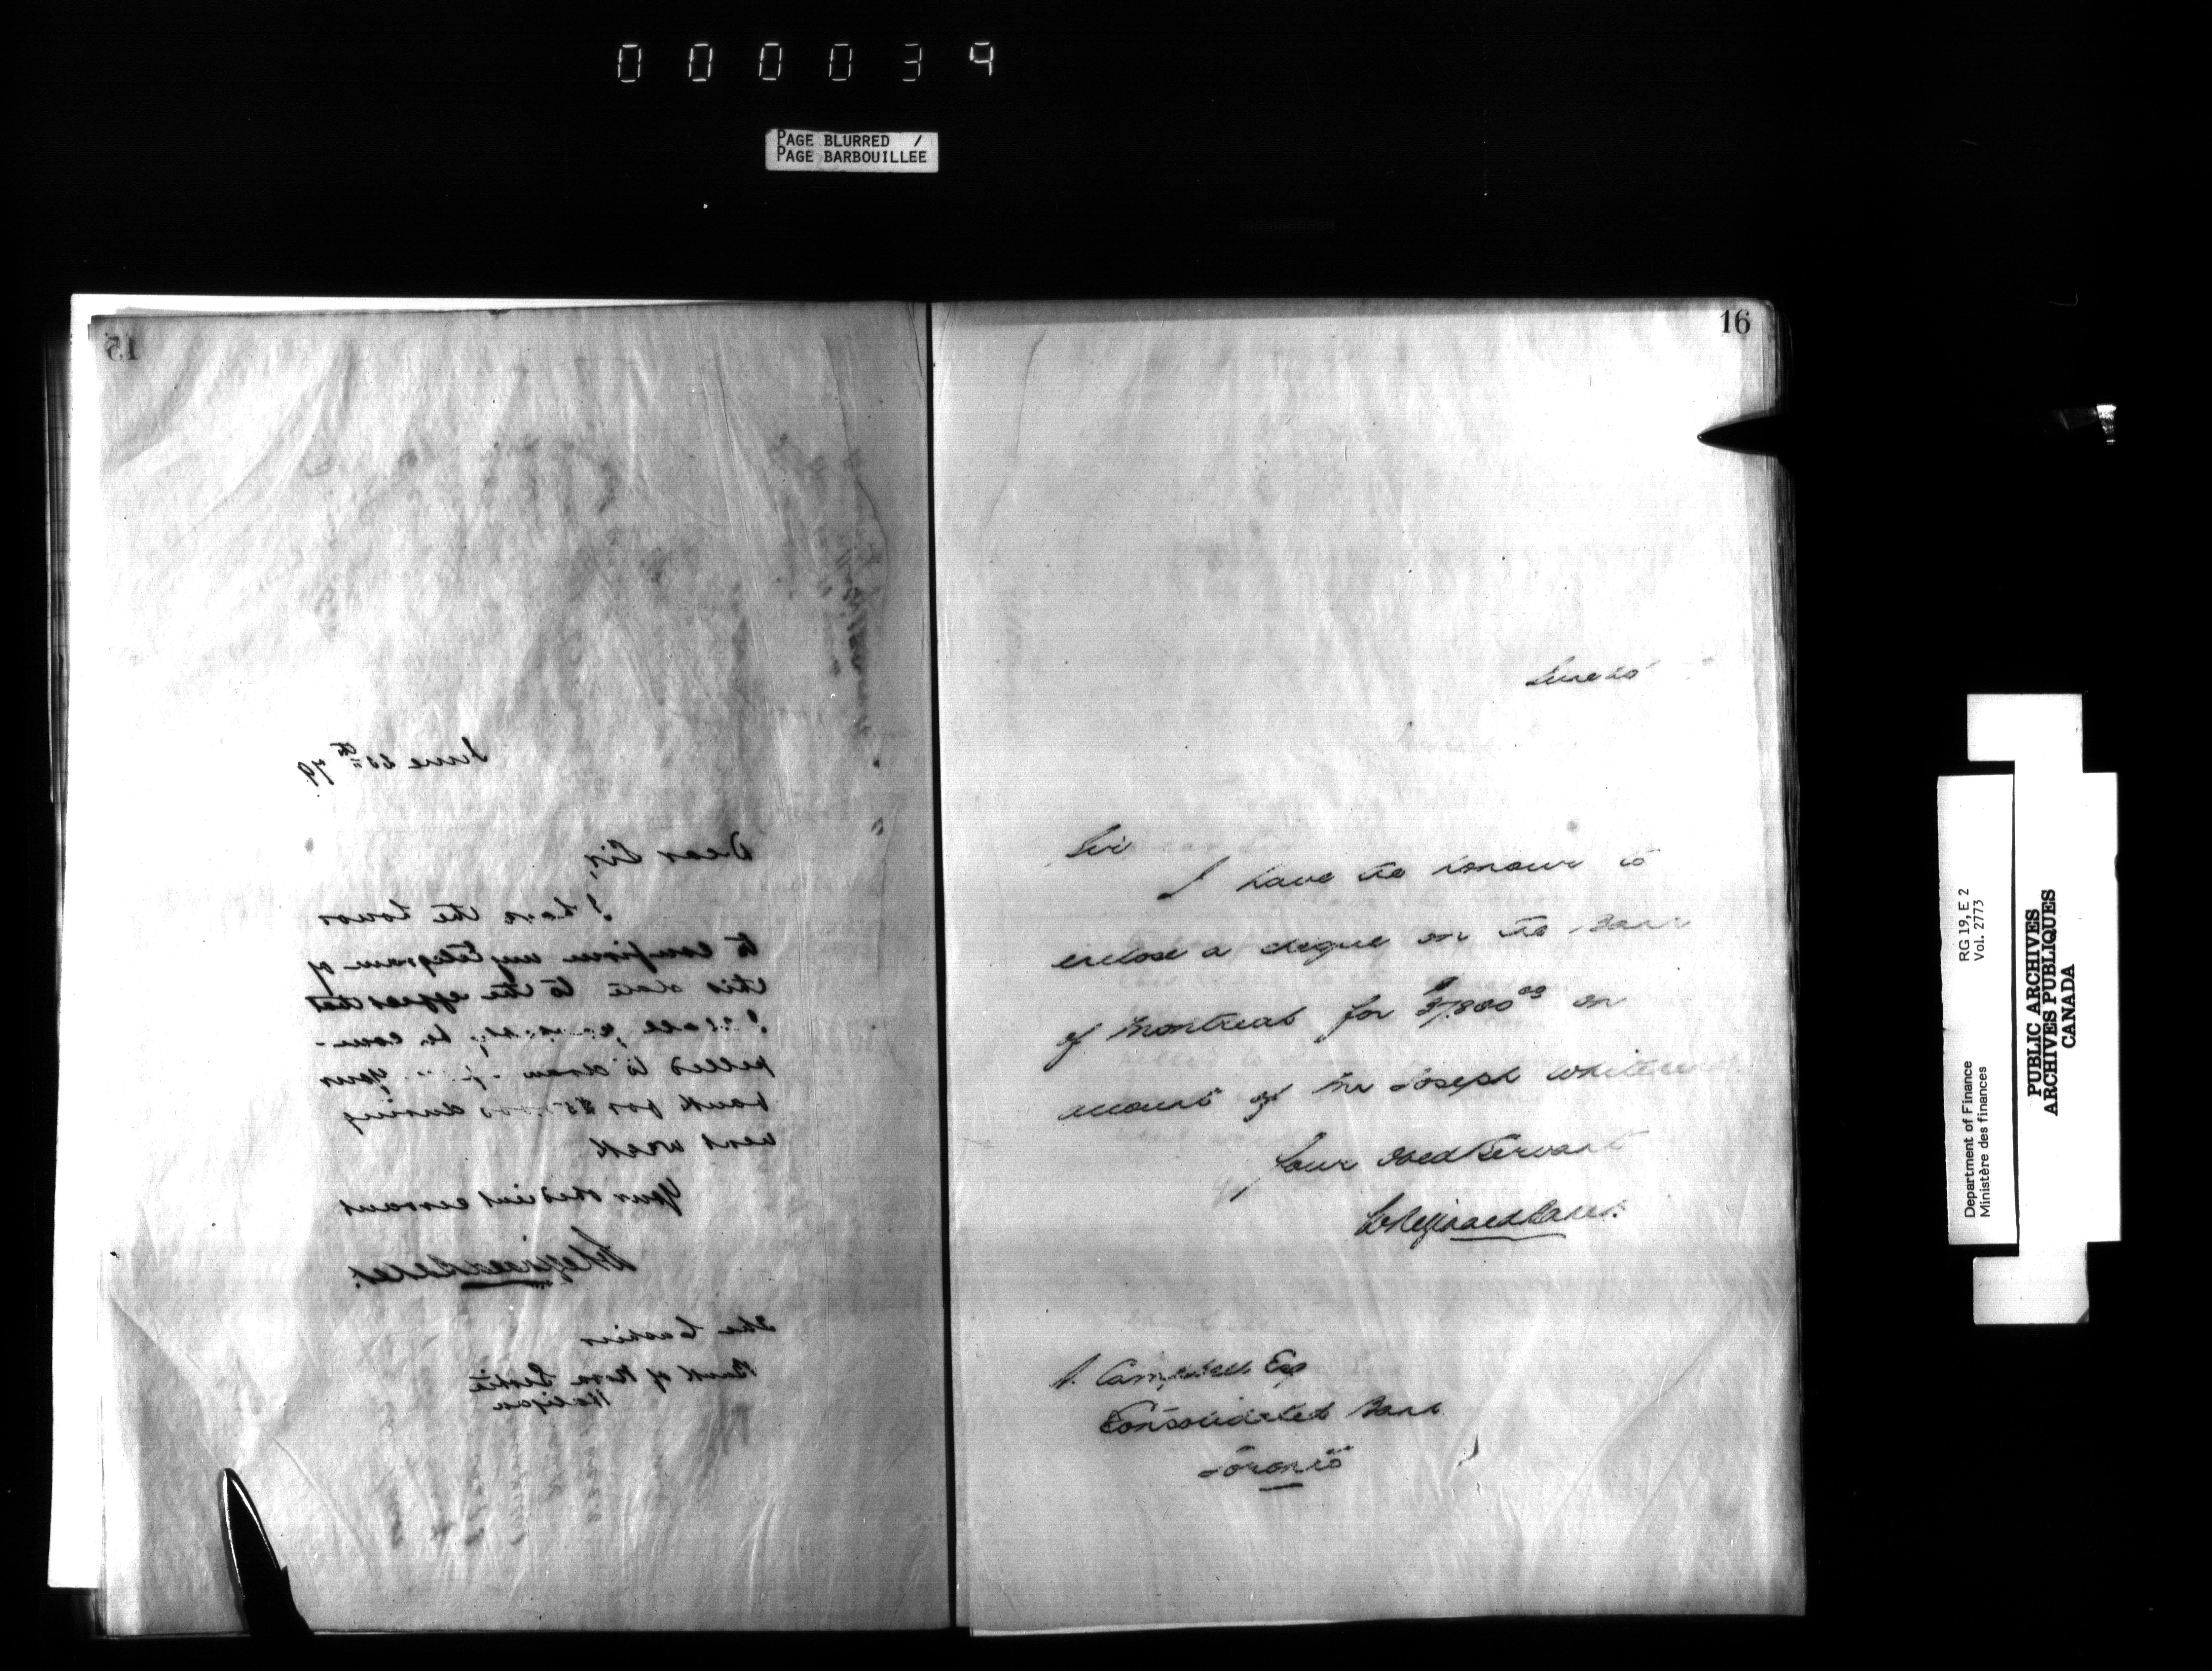 000039
PAGE BLURRED /
PAGE BARBOUILLEE
15
June 25th 79.
Dear Sir,
I have the honor
to confirm my telegram of
this date to the effect that
I shall be com-
pelled to draw your
bank for during
next week
Your obedient servant
The Cashier
Bank of Nova Scotia
Halifax
16
June
Sir
I have the honour to
enclose a cheque on the Bank
of Montreal for $37,800 00 on
account of Mr Joseph Whitehead
Your Obed Servant
A. Campbell Esq
Consolidated Bank
Toronto
RG 19, E 2
Vol. 2773
Department of Finance
Ministère des finances
PUBLIC ARCHIVES
ARCHIVES PUBLIQUES
CANADA